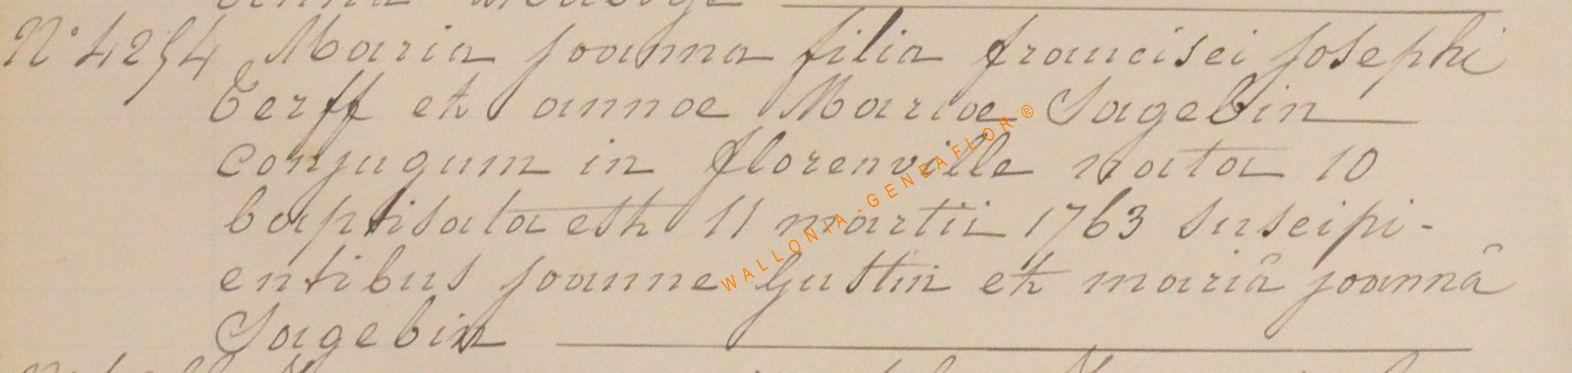 N° 4254 Maria joanna filia francisci josephi
Terff et annae Mariae Sagebin
conjugum in florenville nata 10
baptisata est 11 martii 1763 suscipi-
entibus joanne Gustin et mariâ joannâ
Sagebin
WALLONIA-GENEAFLOR ®